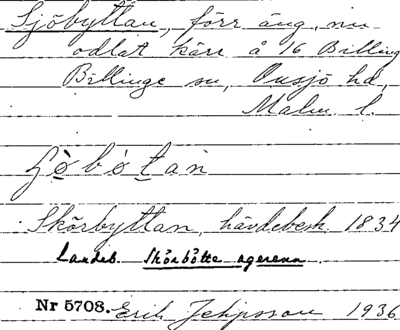 Sjöbyttan, förr äng, nu
odlat kärr å 16 Billinge
Billinge sn, Onsjö hd,
Malm. l.
Skörbyttan, hävdebesk. 1834
Landeb. Skörbötte
Nr 5708. Erik Jeppsson 1936